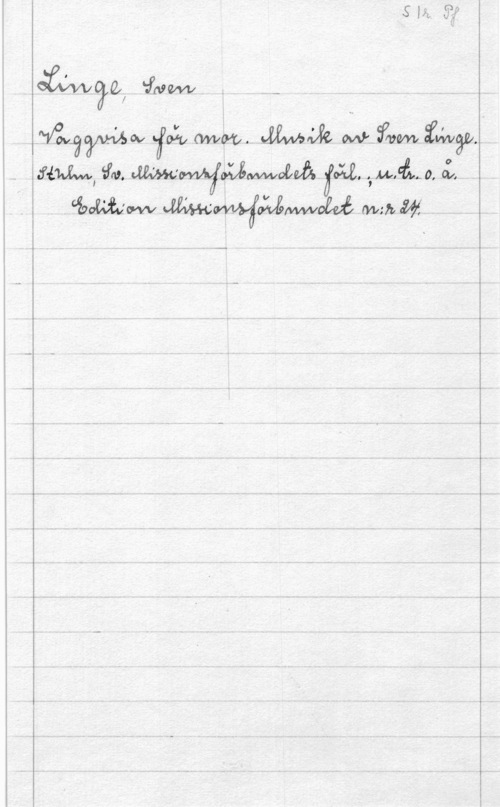 S 1r Pf
Linge, Sven
Vaggvisa för mor. Musik av Sven Linge.
Sthlm, Sv. Missionsförbundets förl.; u. tr. o. å.
Edition Missionsförbundet n:r 24.